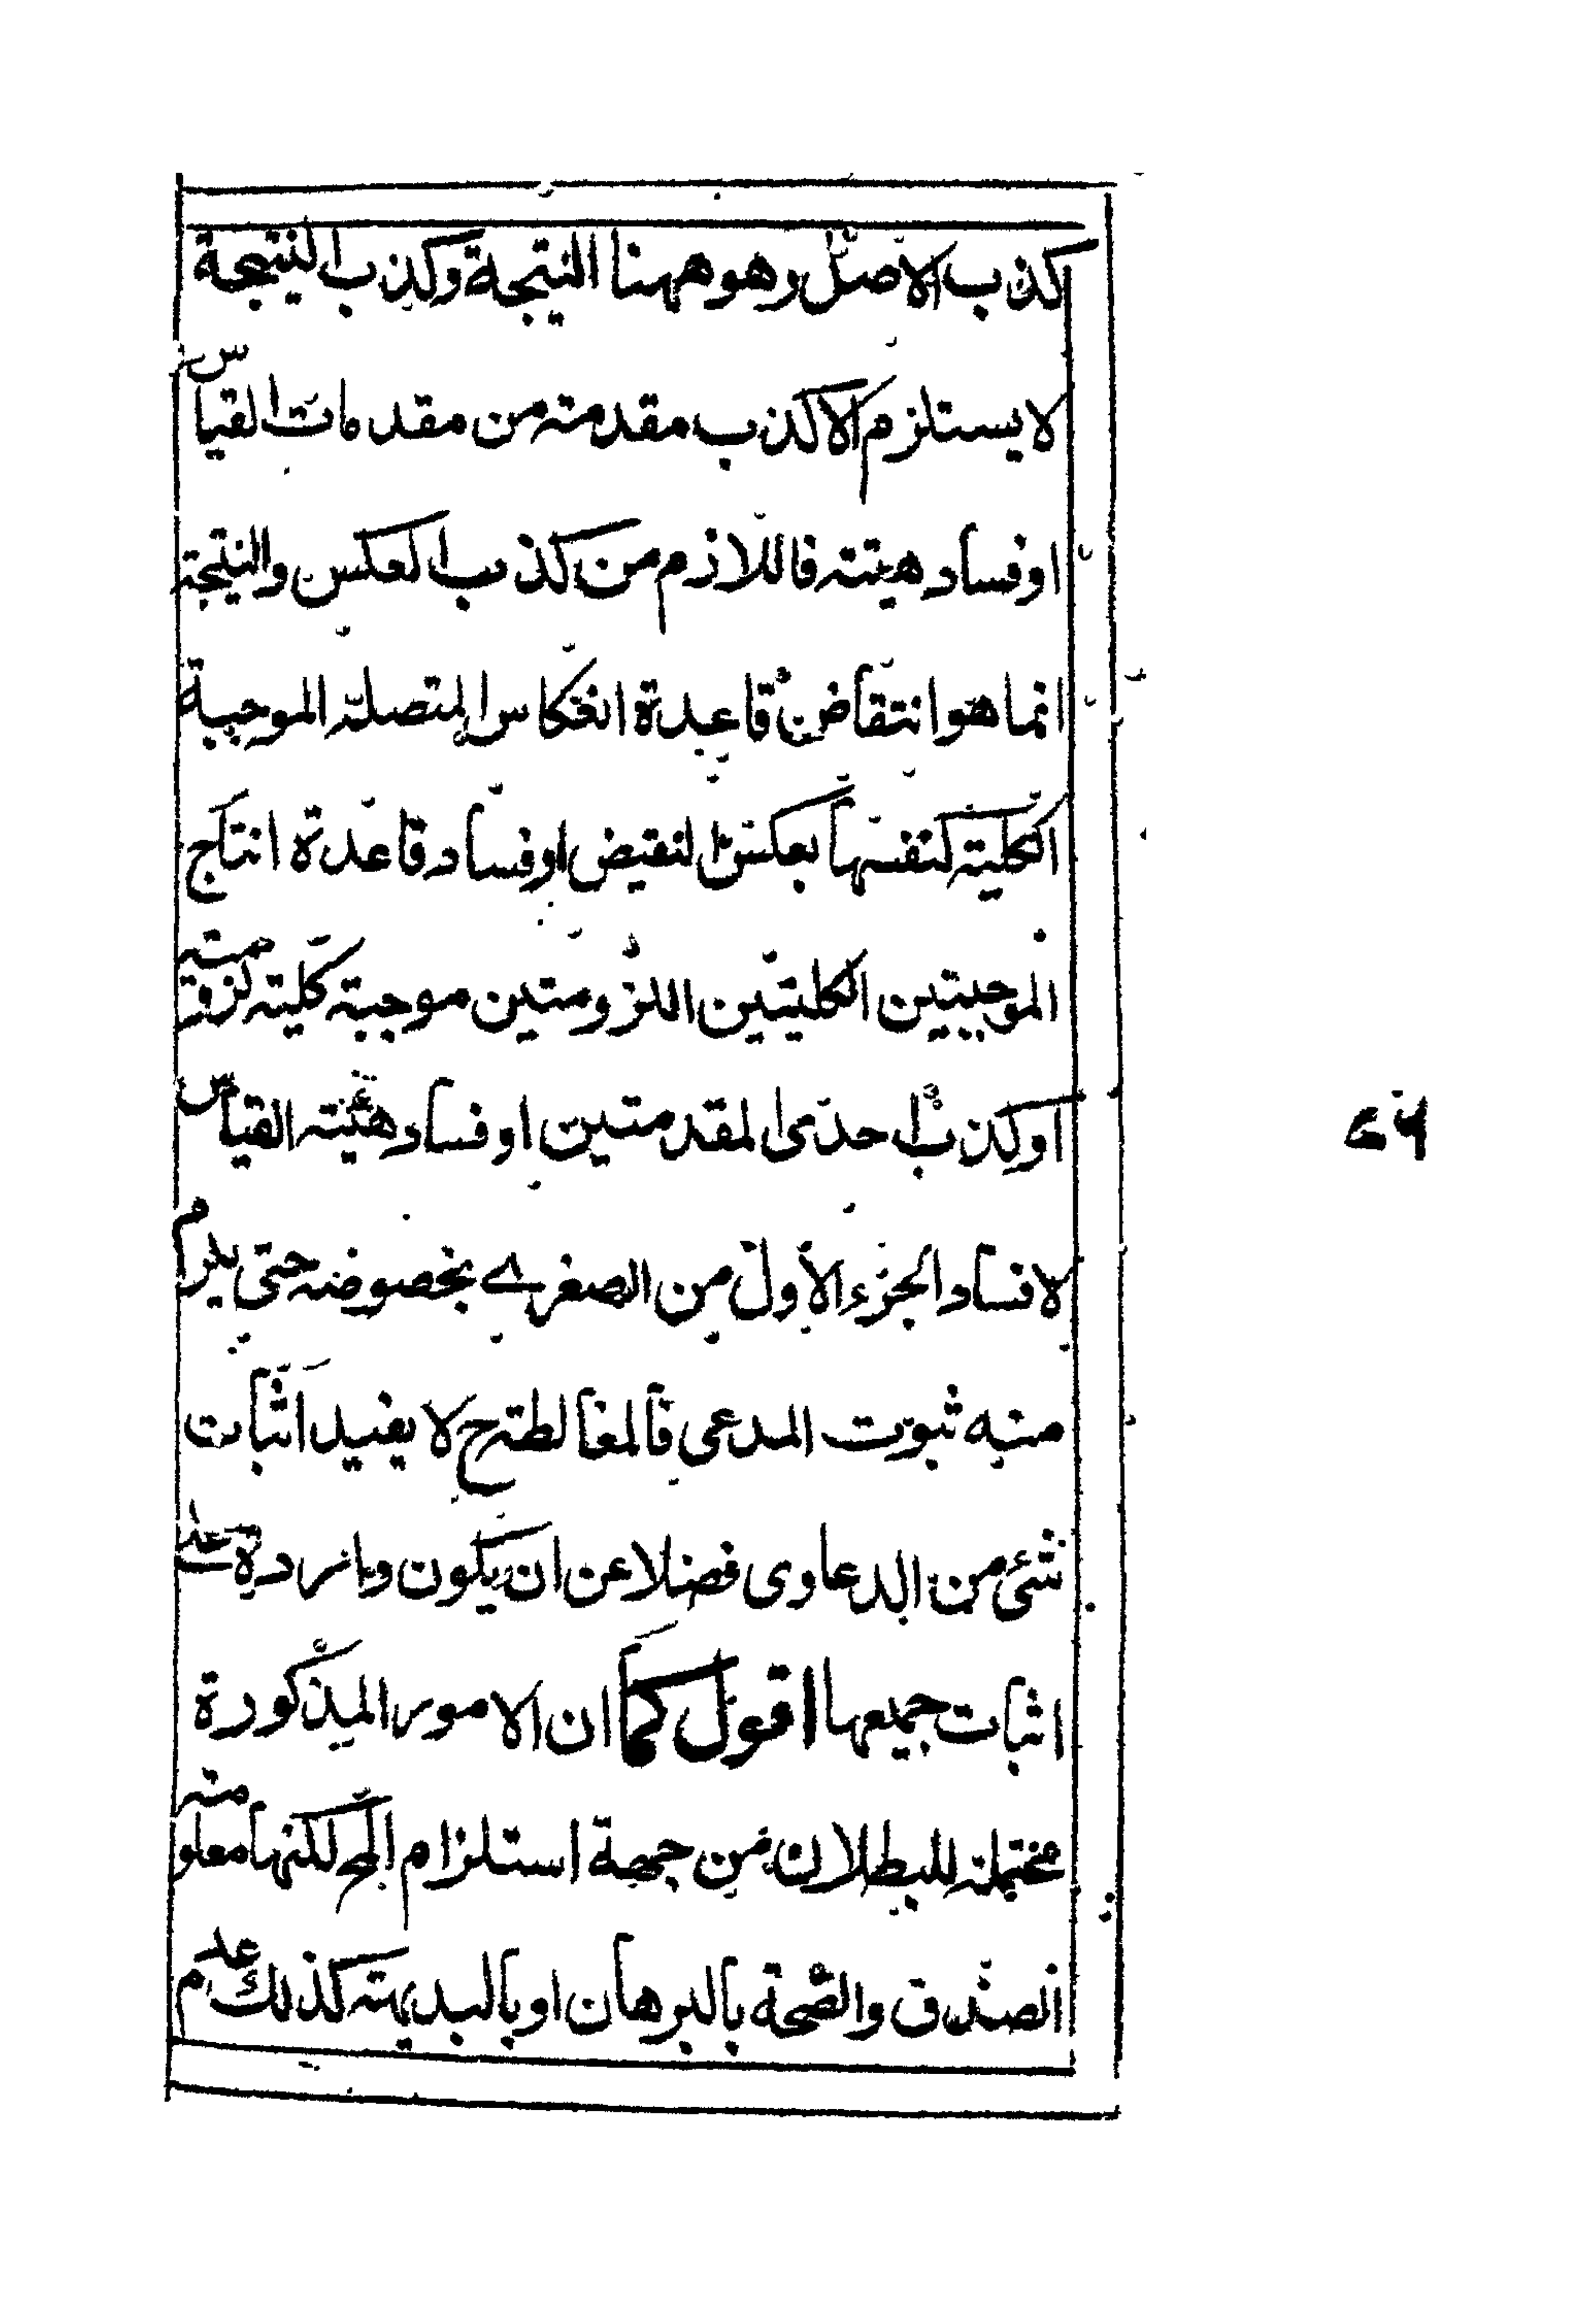 كذب الاصل وهو ههنا النتيجة وكذب النتيجة
لا يستلزم الا كذب مقدمته من مقدمات القياس
او فساد هيئته فاللازم من كذب العكس والنتيجة
انما هو انتقاض قاعدة انعكاس المتصلة الموجبة
الكلية كنفسها بعكس النقيض او فساد قاعدة انتاج
الموجبتين الكليتين اللزومتين موجبة كلية لزومية
او كذب احدى المقدمتين او فساد هيئته القياس
لا فساد الجزء الاول من الصغرے بخصوصه حتى يلزم
منه ثبوت المدعى فالمغالطة ح لا يفيد اثبات
شئ من الدعاوى فضلا عن ان يكون واردة على
اثبات جميعها اقول كما ان الامور المذكورة
محتملة للبطلان من جهة استلزام المح لكنها معلومة
الصدق والصحة بالبرهان او بالبديهة كذلك عدم